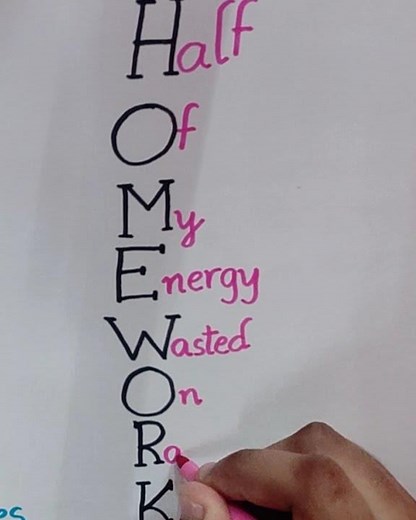 Half
Of
My
Energy
Wasted
On
Ra
K
es